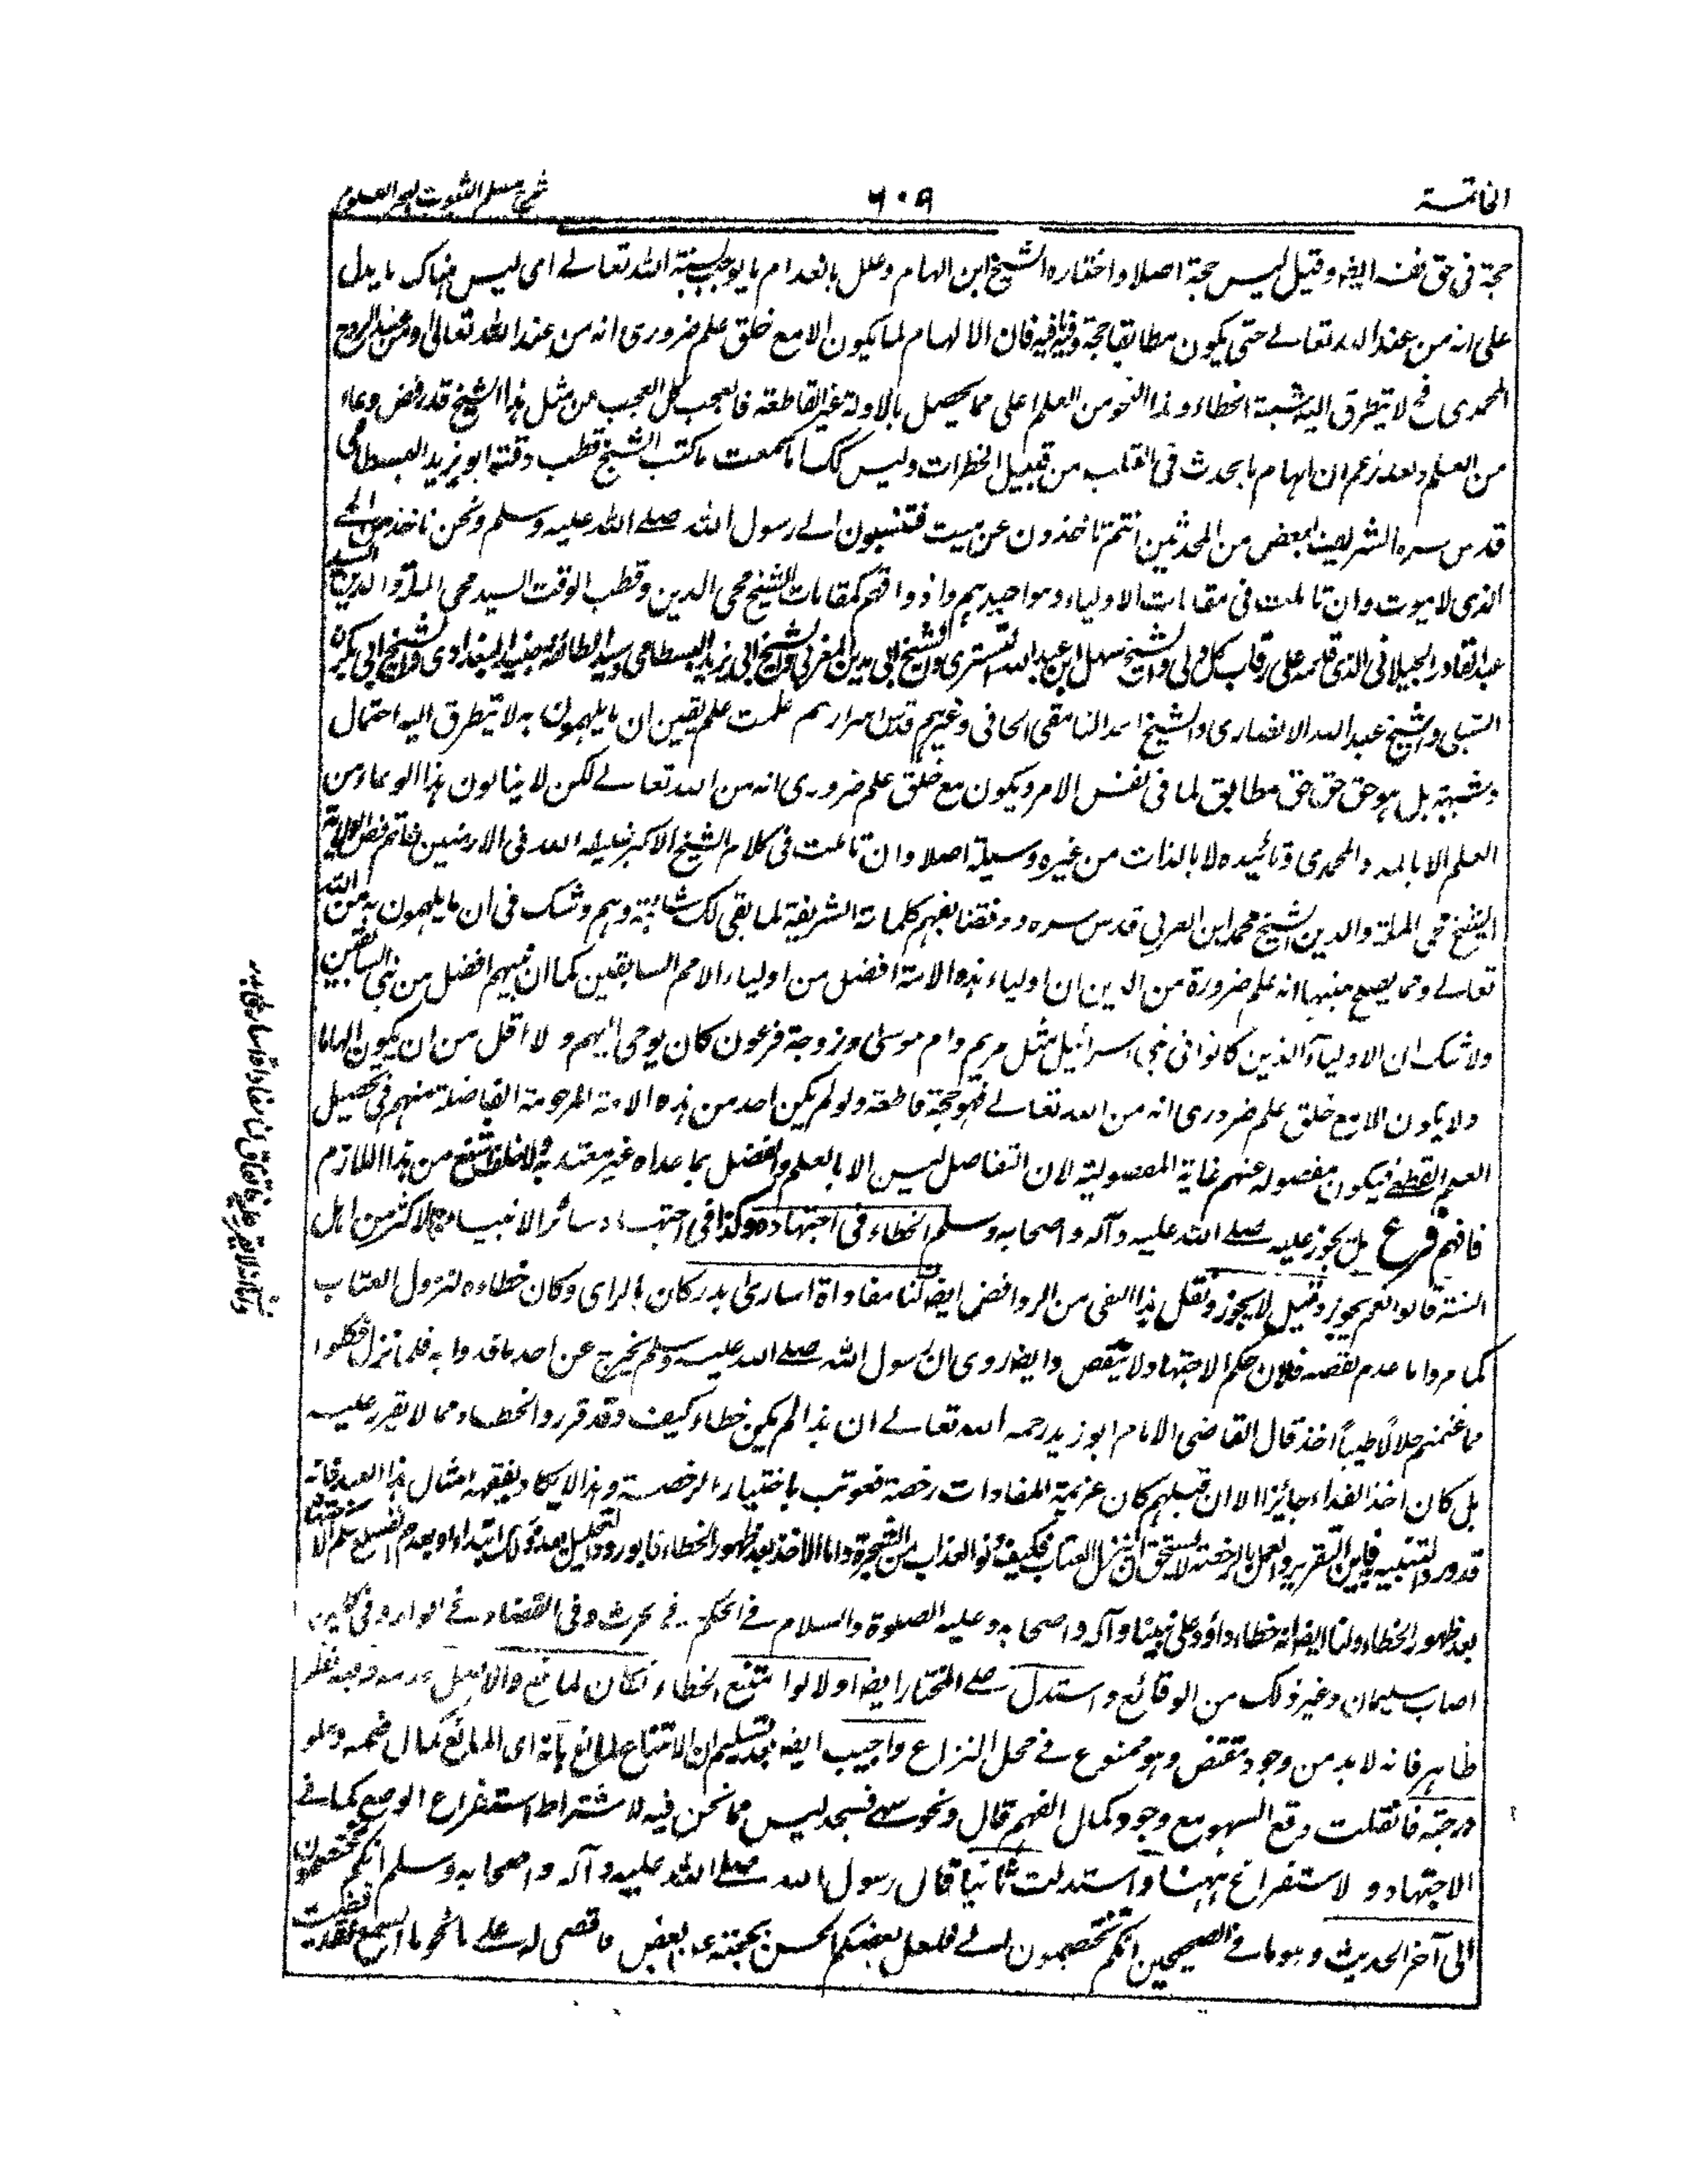 الخاتمة
٦٠٩
شرح مسلم الثبوت لبحر العلوم
حجة فى حق نفسه ايضا وقيل ليس حجة اصلا واختاره الشيخ ابن الهمام وعلل بانعدام ما يوجب نسبة الله تعالے اى ليس هناك ما يدل
على انه من عند الله تعالے حتى يكون مطابقا حجة وفيه ما فيه فان الالهام لما يكون الا مع خلق علم ضرورى انه من عند الله تعالى او من عند الروح
المحمدى فح لا يتطرق اليه شبهة الخطاء وهذا النحو من العلم اعلى مما يحصل بالادلة غير القاطعة فالعجب كل العجب من مثل هذا الشيخ قد رفض وعاء
من العلم ولعله زعم ان الهام ما يحدث فى القلب من قبيل الخطرات وليس كك اما سمعت ما كتب الشيخ قطب وقته ابو يزيد البسطامى
قدس سره الشريف لبعض من المحدثين انتم تاخذون عن ميت فتنسبون الے رسول الله صلے الله عليه وسلم ونحن ناخذ من الحے
الذى لا يموت وان تاملت فى مقامات الاولياء ومواجيدهم واذواقهم كمقامات الشيخ محى الدين وقطب الوقت السيد محى الملة والدين السيد
عبد القادر الجيلانى الذى قدمه على رقاب كل ولى والشيخ سهل ابن عبد الله التسترى والشيخ ابى مدين المغربى والشيخ ابى يزيد البسطامى وسيد الطائفة جنيد البغدادى والشيخ ابى بكر
الشبلى والشيخ عبد الله الانصارى والشيخ احمد النامقى الجامى وغيرهم قدس اسرارهم علمت علم يقين ان ما يلهمون به لا يتطرق اليه احتمال
وشبهة بل هو حق حق حق مطابق لما فى نفس الامر ويكون مع خلق علم ضرورى انه من الله تعالے لكن لا ينالون هذا الوعاء من
العلم الا بالمدد المحمدى وتائيده لا بالذات من غيره وسيلة اصلا وان تاملت فى كلام الشيخ الاكبر خليفة الله فى الارضين خاتم فص الولاية
الشيخ محى الملة والدين الشيخ محمد ابن العربى قدس سره ووفقنا لفهم كلماته الشريفة لما بقى لك شائبة وهم وشك فى ان ما يلهمون به من الله
تعالے ومما يصلح منبها انه علم ضرورة من الدين ان اولياء هذه الامة افضل من اولياء الامم السابقين كما ان نبيهم افضل من نبى السابقين
ولا شك ان الاولياء الذين كانوا فى بنى اسرائيل مثل مريم وام موسى وزوجة فرعون كان يوحى اليهم ولا اقل من ان يكون الهاما
ولا يكون الا مع خلق علم ضرورى انه من الله تعالے فهو حجة قاطعة ولو لم يكن احد من هذه الامة المرحومة الفاضلة منهم فى تحصيل
العلم القطعے فيكون مفضولة عنهم غاية المفضولية لان التفاضل ليس الا بالعلم والفضل بما عداه غير معتد به ولا خلف اشنع من هذا اللازم
فافهم فرع هل يجوز عليه صلے الله عليه وآله واصحابه وسلم الخطاء فى اجتهاده وكذا فى اجتهاد سائر الانبياء فالاكثر من اهل
السنة قالوا نعم يجوز وقيل لا يجوز ونقل هذا النفى من الروافض ايضا لنا مفاداة اسارى بدر كان بالراى وكان خطاء لنزول العتاب
كما مر واما عدم نقضه فلان حكم الاجتهاد لا ينقض وايضا روى ان رسول الله صلے الله عليه وسلم لم يخرج عن احد ما فدوا به فلما نزل فكلوا
مما غنمتم حلالا طيبا اخذ قال القاضى الامام ابو زيد رحمه الله تعالے ان هذا لم يكن خطاء كيف وقد قرر والخطاء مما لا يقرر عليه
بل كان اخذ الفداء جائزا الا ان قتلهم كان عزيمة والمفادات رخصة فعوتب باختيار الرخصة وهذا لا يكاد يفقهه امثال هذا العبد فانه
قد ورد التنبيه فاين التقرير والعمل بالرخصة لا يستحق ان ينزل العتاب فكيف دنو العذاب من الشجرة واما الاخذ بعد ظهور الخطاء فا بورود التحليل بعد ذلك ابتداء او بعدم
بعد ظهور الخطاء ولنا ايضا انه خطاء داؤد على نبينا وآله واصحابه وعليه الصلوة والسلام فے الحكم فے الحرث وفى القضاء فے الوارد فى
اصاب سليمان وغير ذلك من الوقائع واستدل علے المختار ايضا اولا لو امتنع الخطاء لكان لمانع والاصل عدمه وفيه نظر
ظاهر فانه لا بد من وجود مقتض وهو ممنوع فے محل النزاع واجيب ايضا بعد تسليم ان الامتناع للمانع بانه اى المانع كمال فهمه وعلو
درجته فانقلت وقع السهو مع وجود كمال الفهم قال ونحو سهے فسجد ليس مما نحن فيه لاشتراط استفراغ الوسع كما فے
الاجتهاد ولا استفراغ ههنا واستدلت ثانيا قال رسول الله صلے الله عليه وآله واصحابه وسلم انكم تختصمون
الى آخر الحديث وهو ما فے الصحيحين انكم تختصمون الے فلعل بعضكم الحن بحجته من بعض فاقضى له علے نحو ما اسمع فمن قضيت